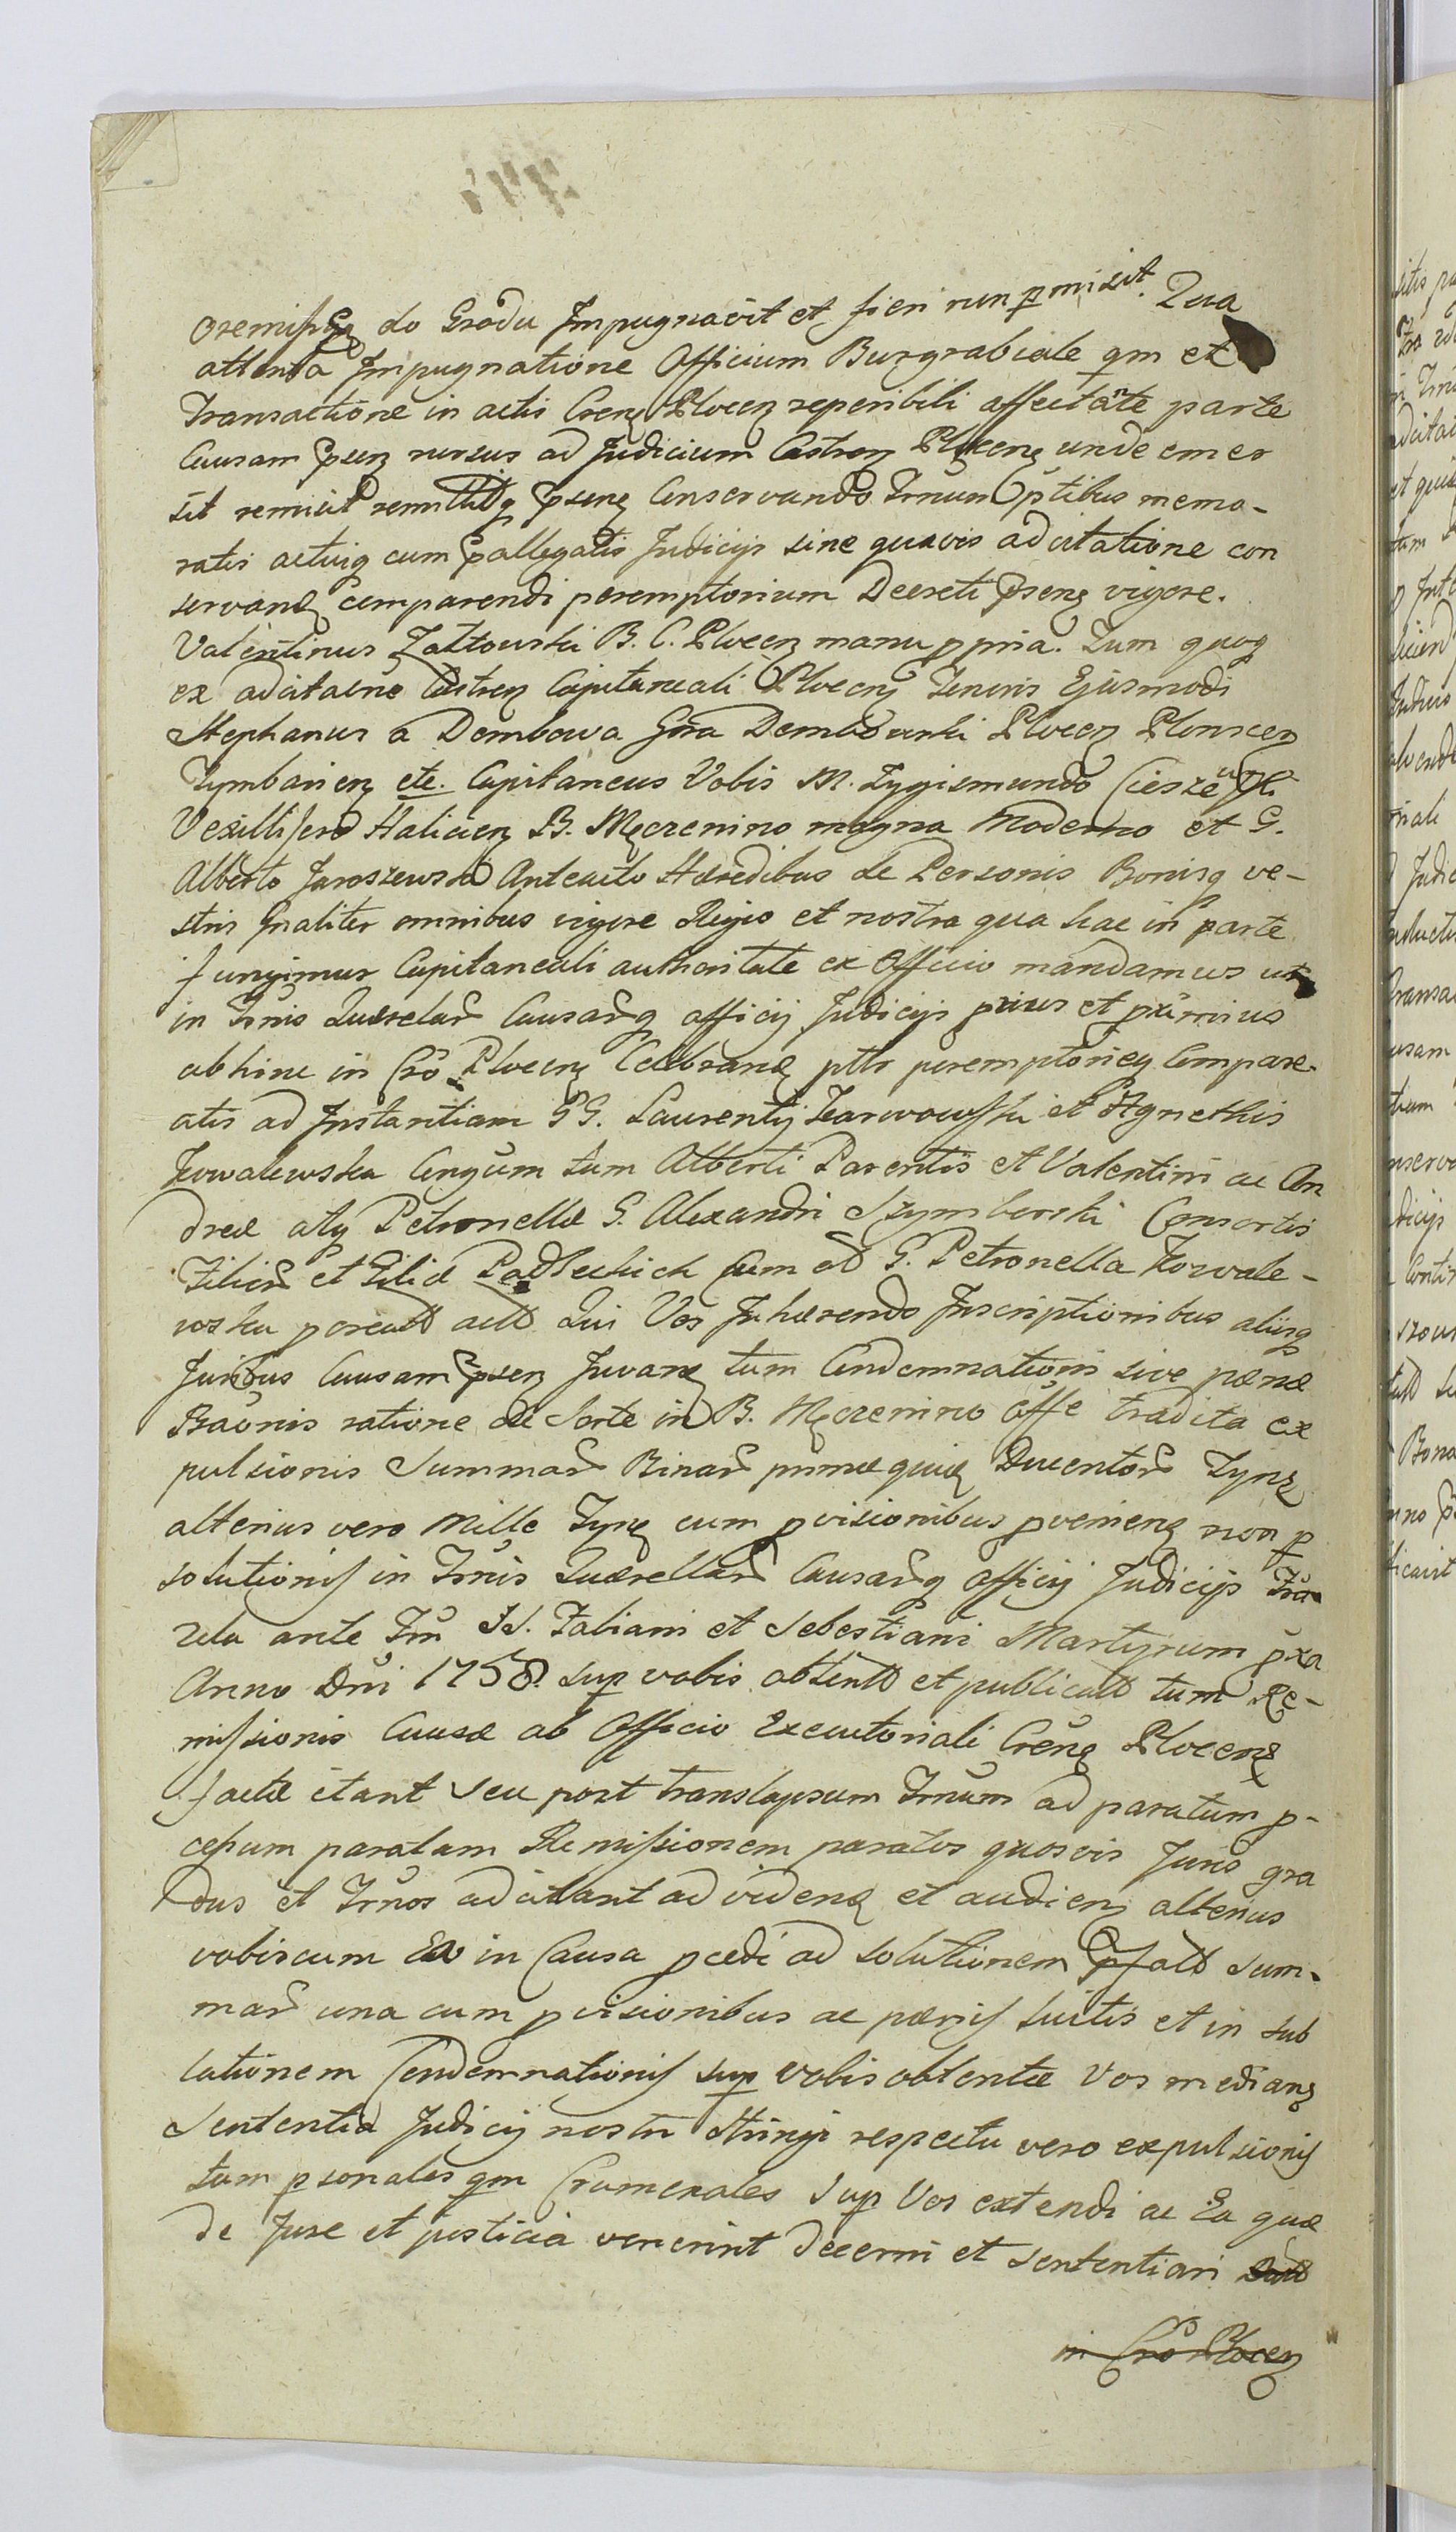 de Gradu Impugnavit et fieri non pmisit. Qua
attenta Impugnatione Officium Burgrabiale qm et
Transactione in actis Cren Plocen reperibili affectāte parte
Causam psen rursus ad Judicium Castren Plocen unde emer
sit remisit remittitq psenq Conservando Trnum Ptibus memo-
ratis actuiq cum pallegatis Judicijs sine quavis adcitatione con
servand comparendi peremptorium Decreti psenq vigore.
Valentinus Zattowski B. C. Plocen manu ppria. Tum quoq
ex adcitaōne Castren Capitaneali Plocen Tenoris Ejusmodi
Stephanus a Dembowa Gora Dembowski Plocen Plonscen
Tymbarien etc. Capitaneus Vobis M. Zygismundo Cieszewski
Vexillifero Halicien B. Męczenino magna Moderno et G.
Alberto Jaroszewski Antenato Hæredibus de Personis Bonisq ve-
stris gnaliter omnibus vigore Regio et nostra qua hac in parte
fungimur Capitaneali authoritate ex Officio mandamus ut
in Trnis Querelar Causarq officij Judicijs prius et prximius
abhinc in Cro Plocen Celebrand pttr peremptorieq Compare-
atis ad Instantiam GG. Laurentij Karwowski et Agnethis
Kowalewska Conjgum tum Alberti Parentis et Valentini ac An
dreæ atq Petronellæ G. Alexandri Szymborski Consortis
Filior et Filiæ Podleckich cum ol G. Petronella Kowale-
wska procreat act Qui Vos Inhærendo Inscriptionibus alijsq
Juribus Causam psen Juvan tum Condemnationi sive pænæ
Baōnis ratione de Sorte in B. Męczenino offe tradita ex
pulsionis Summar Binar primæ quiq Ducentor Tynf
alterius vero Mille Tynf cum pvisionibus pvenien non p
solutionis in Trnis Querellar Causarq officij Judicijs
ante Fm SS. Fabiani et Sebestiani Martyrum pxa
Anno Dni 1758. sup vobis obtent et publicat tum Re-
missionis Causæ ab Officio Executoriali Cren Plocen
factæ citant seu post translapsum Trnum ad paratum p-
cessum paratam Remissionem paratos quosvis Juris gra
dus et Trnos adcitant ad viden et audien alterius
vobiscum Eo in Causa pcedi ad solutionem pfat Sum-
mar una cum pvisionibus ac pænis luitis et in sub
lationem Condemnationis sup vobis obtentæ Vos median
Sententia Judicij nostri Stringi respectu vero expulsionis
tam psonales qm Crumenales sup Vos extendi ac Ea quæ
de Jure et justicia venerint decerni et sententiari Dat
in Cro Plocen